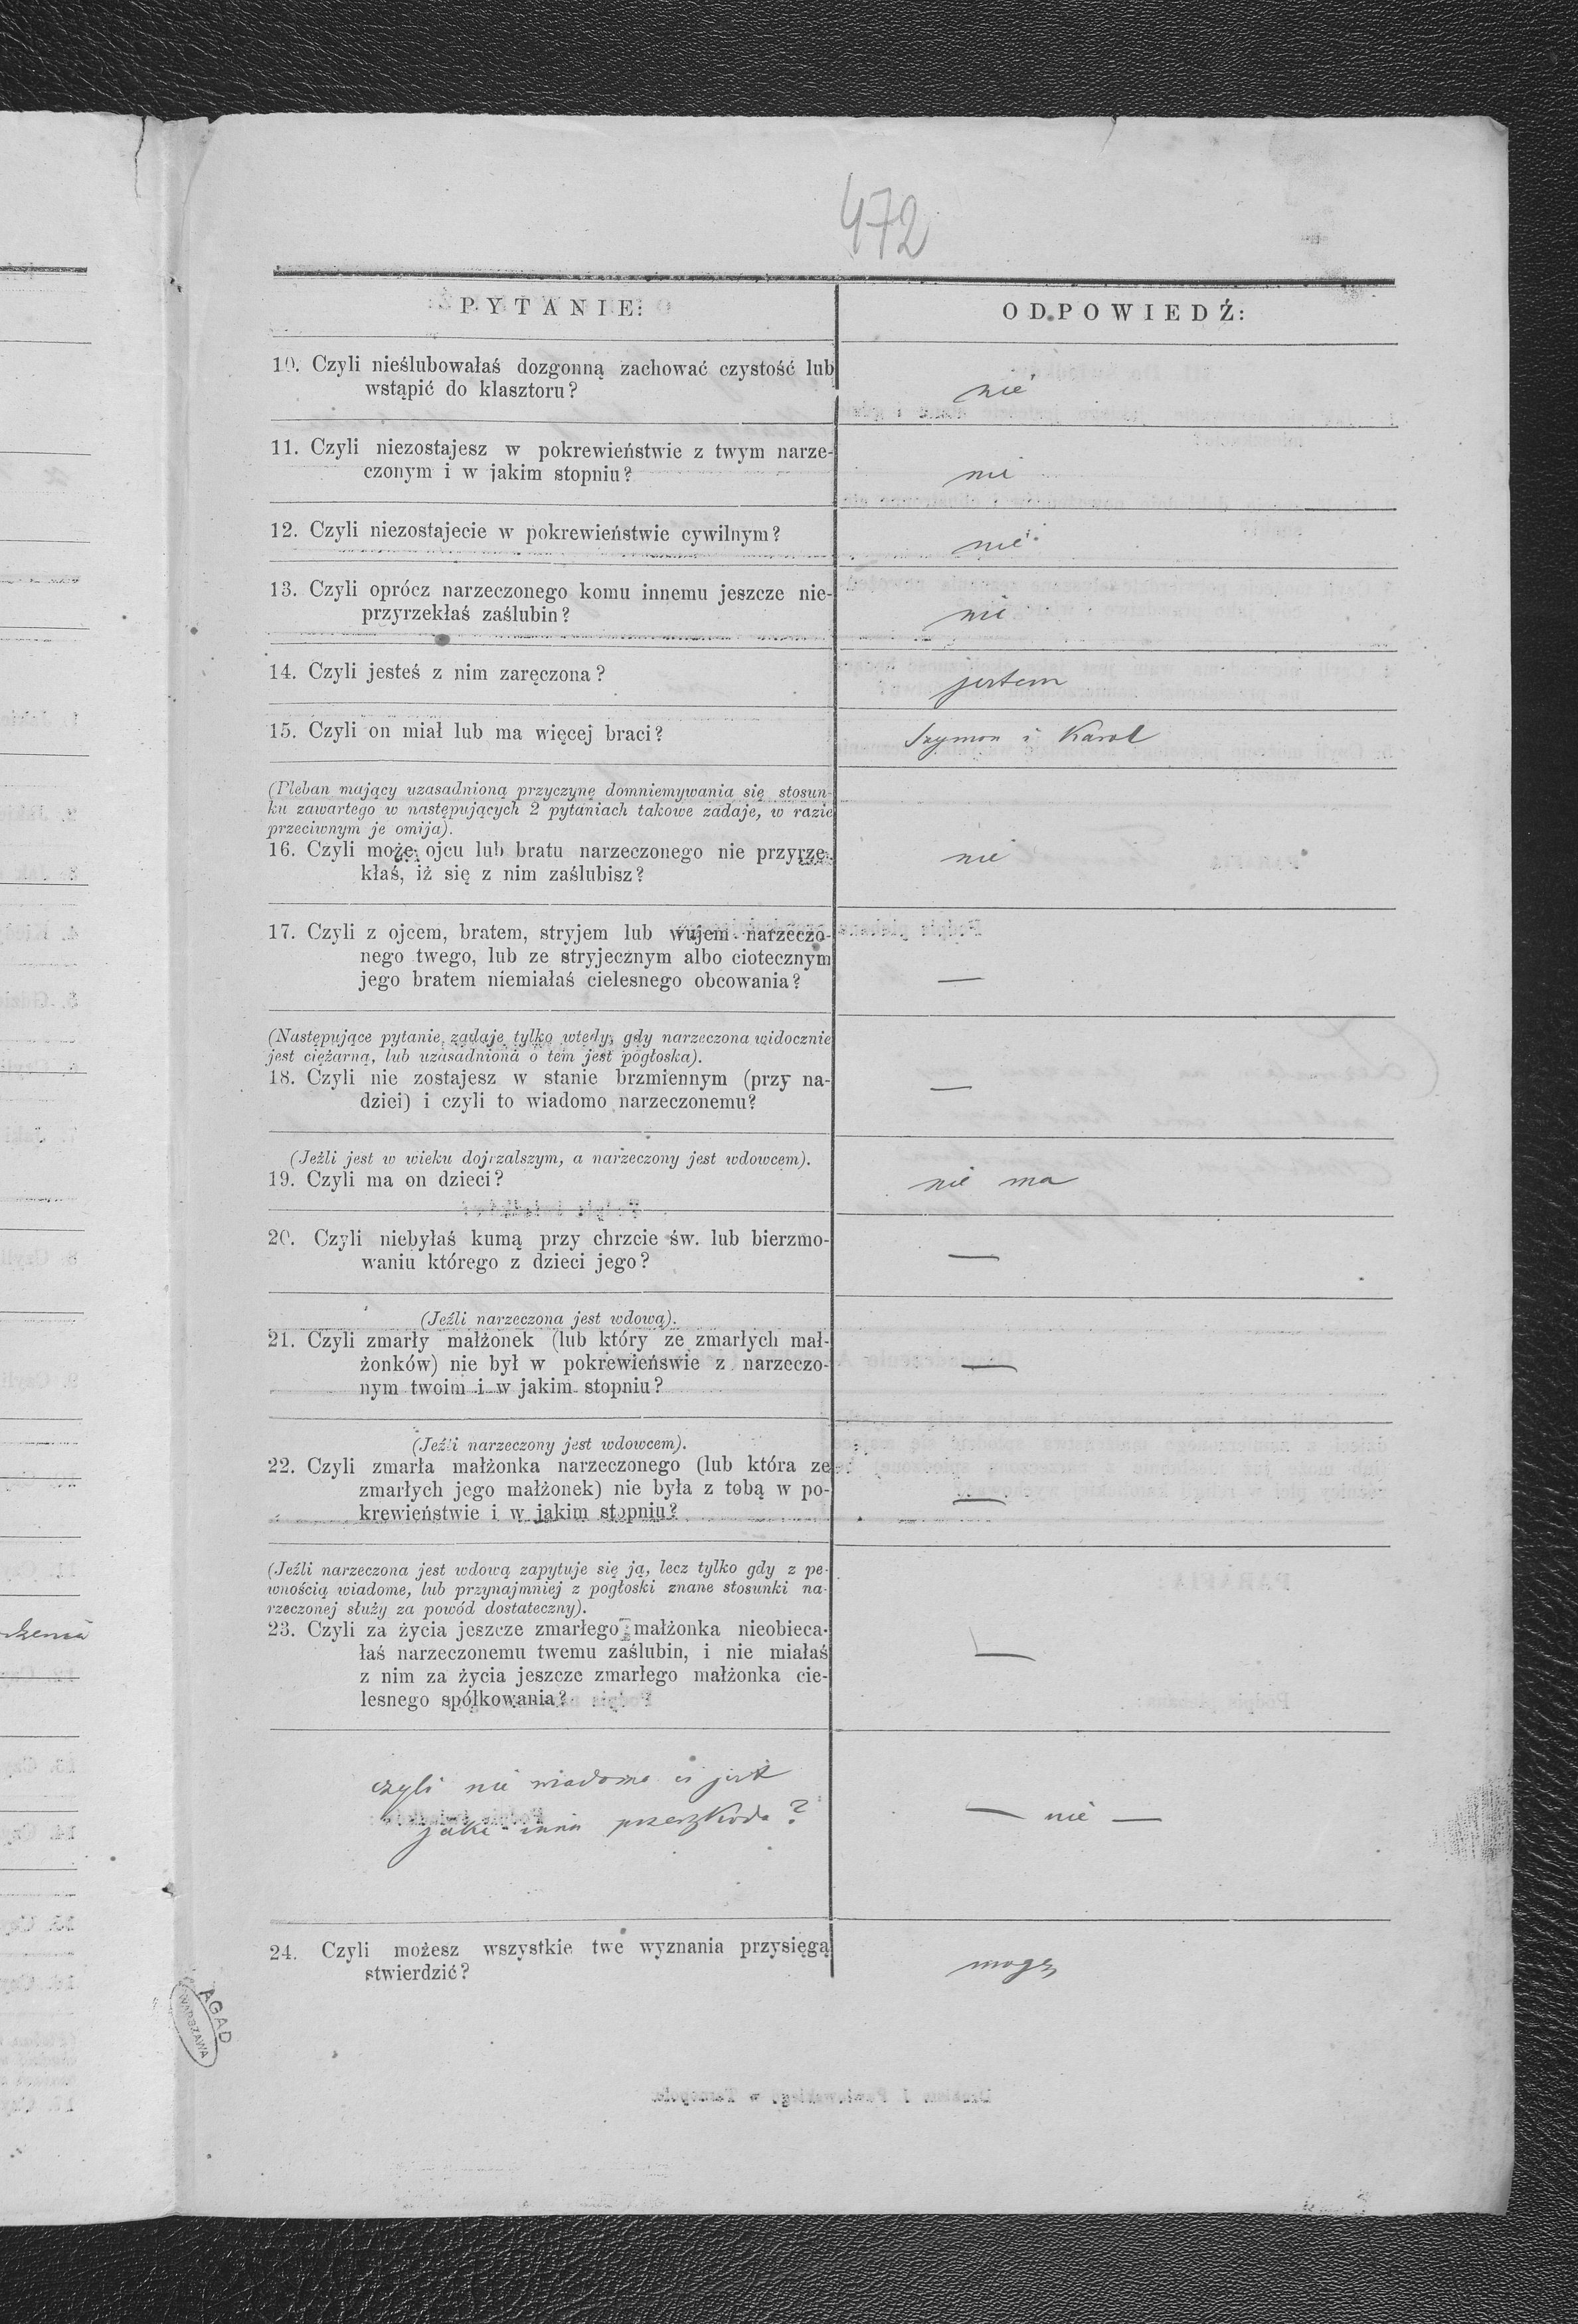 472
PYTANIE:
ODPOWIEDŹ:
10. Czyli nieślubowałaś dozgonną zachować czystość lub
wstąpić do klasztoru?
nie
11. Czyli niezostajesz w pokrewieństwie z twym narze-
czonym i w jakim stopniu?
nie
12. Czyli niezostajecie w pokrewieństwie cywilnym?
nie
13. Czyli oprócz narzeczonego komu innemu jeszcze nie-
przyrzekłaś zaślubin?
nie
14. Czyli jesteś z nim zaręczona?
jestem
15. Czyli on miał lub ma więcej braci?
Szymon i Karol
(Pleban mający uzasadnioną przyczynę domniemywania się stosun-
ku zawartego w następujących 2 pytaniach takowe zadaje, w razie
przeciwnym je omija).
16. Czyli może ojcu lub bratu narzeczonego nie przyrze-
kłaś, iż się z nim zaślubisz?
nie
17. Czyli z ojcem, bratem, stryjem lub wujem narzeczo-
nego twego, lub ze stryjecznym albo ciotecznym
jego bratem niemiałaś cielesnego obcowania?
—
(Następujące pytanie zadaje tylko wtedy, gdy narzeczona widocznie
jest ciężarną, lub uzasadniona o tem jest pogłoska).
18. Czyli nie zostajesz w stanie brzmiennym (przy na-
dziei) i czyli to wiadomo narzeczonemu?
—
(Jeźli jest w wieku dojrzalszym, a narzeczony jest wdowcem).
19. Czyli ma on dzieci?
nie ma
20. Czyli niebyłaś kumą przy chrzcie św. lub bierzmo-
waniu którego z dzieci jego?
—
(Jeźli narzeczona jest wdową).
21. Czyli zmarły małżonek (lub który ze zmarłych mał-
żonków) nie był w pokrewieńswie z narzeczo-
nym twoim i w jakim stopniu?
—
(Jeźli narzeczony jest wdowcem).
22. Czyli zmarła małżonka narzeczonego (lub która ze
zmarłych jego małżonek) nie była z tobą w po-
krewieństwie i w jakim stopniu?
—
(Jeźli narzeczona jest wdową zapytuje się ją, lecz tylko gdy z pe-
wnością wiadome, lub przynajmniej z pogłoski znane stosunki na-
rzeczonej służy za powód dostateczny).
23. Czyli za życia jeszcze zmarłego małżonka nieobieca-
łaś narzeczonemu twemu zaślubin, i nie miałaś
z nim za życia jeszcze zmarłego małżonka cie-
lesnego spółkowania?
—
czyli nie wiadoma ci jest
jaka inna przeszkoda?
— nie —
24. Czyli możesz wszystkie twe wyznania przysięgą
stwierdzić?
mogę
AGAD
WARSZAWA